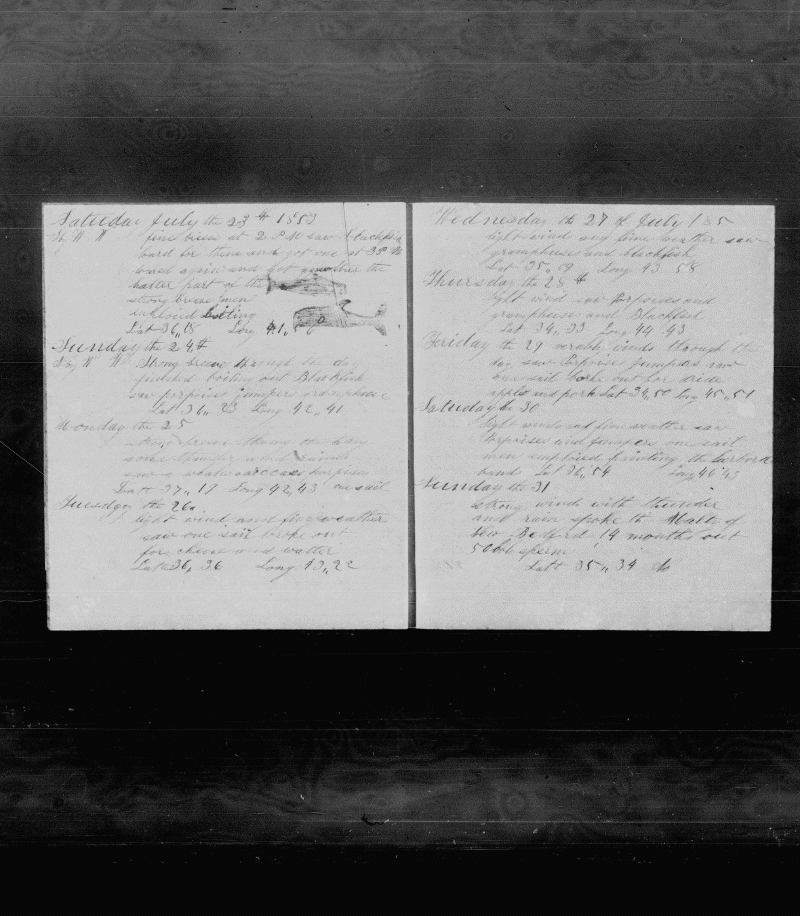 Saturday July the 23th 1853
S by W W fine breeze at 2 P M saw blackfish
lowed for them and got one at 3 P M
lowed again and got another the
latter part of the
strong breeze men
imploid boiling
Lat 36,,18 Long 41,,
Sunday the 24th
S by W W Strong breeze through the day
finished boiling out Blackfish
saw porpoises jumpers grampuses
Lat 36,, 23 Long 42,, 41
Monday the 25
strong breeze threw the day
some thunder and
saw a whale carcass porpoises
Latt 37,, 17 Long 42,, 43 one sail
Tuesday the 26
light wind and fine weather
saw one sail broke out
for cheese and watter
Lat 36,, 36 Long 43,, 22
Wednesday the 27 of July 185
light wind and fine weather saw
gramphuses and blackfish
Lat 35,, 9 Long 43 58
Thursday the 28th
light wind saw Porpoises and
gramphuses and Blackfish
Lat 34,, 33 Long 44,, 43
Friday the 29 verable winds through the
day saw Porpoise Jumpers saw
one sail broke out for dride
apples and pork Lat 34,, 50 Long 45,, 51
Saturday the 30
light winds and fine weather saw
Porpoises and jumpers one sail
men emploied painting the Larbord
boat Lat 36,, 54 Long 46,, 43
Sunday the 31
strong winds with thunder
and rain spoke the Malta of
New Bedford 14 months out
500bb sperm
Latt 35,, 34